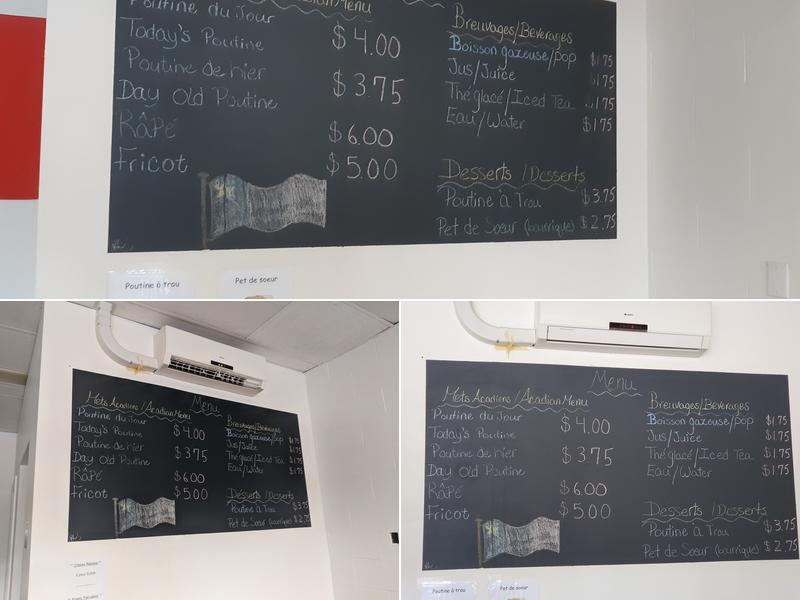 Poutine du Jour
Today's Poutine $4.00
Poutine de hier
Day Old Poutine $3.75
Râpé $6.00
Fricot $5.00
Breuvages/Beverages
Boisson gazeuse/pop $1.75
Jus/Juice $1.75
Thé glacé/Iced Tea $1.75
Eau/Water $1.75
Desserts/Desserts
Poutine à Trou $3.75
Pet de Soeur (bourrique) $2.75
Poutine à trou
Pet de soeur
Menu
Mets Acadiens/Acadian Menu
Poutine du Jour
Today's Poutine $4.00
Poutine de hier
Day Old Poutine $3.75
Râpé $6.00
Fricot $5.00
Breuvages/Beverages
Boisson gazeuse/pop $1.75
Jus/Juice $1.75
Thé glacé/Iced Tea $1.75
Eau/Water $1.75
Désserts/Desserts
Poutine à Trou $3.75
Pet de Soeur (bourrique) $2.75
Menu
Mets Acadiens/Acadian Menu
Poutine du Jour
Today's Poutine $4.00
Poutine de hier
Day Old Poutine $3.75
Râpé $6.00
Fricot $5.00
Breuvages/Beverages
Boisson gazeuse/pop $1.75
Jus/Juice $1.75
Thé glacé/Iced Tea $1.75
Eau/Water $1.75
Desserts/Desserts
Poutine à Trou $3.75
Pet de Soeur (bourrique) $2.75
Poutine à trou
Pet de soeur